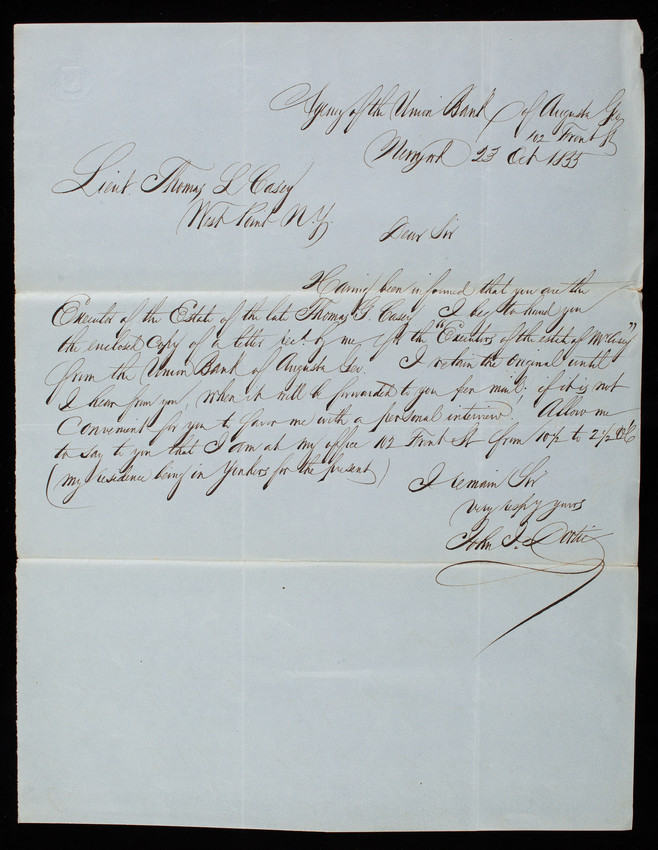 Agency of the Union Bank of Augusta Geo
102 Front St
New york 23 Oct 1855
Lieut. Thomas L Casey
West Point N.Y.
Dear Sir
Having been informed that you are the
Executor of the Estate of the late Thomas G. Casey I beg to hand you
the enclosed copy of a letter recd. by me for the "Executors of the estate of Mr Casey"
from the Union Bank of Augusta Geo. I retain the original until
I hear from you, when it will be forwarded to you per mail, if it is not
Convenient for you to favor me with a personal interview. Allow me
to say to you that I am at my office 102 Front St from 10½ to 2½ O'C
(my residence being in Yonkers for the present)
I remain Sir
very respy yours
John J.